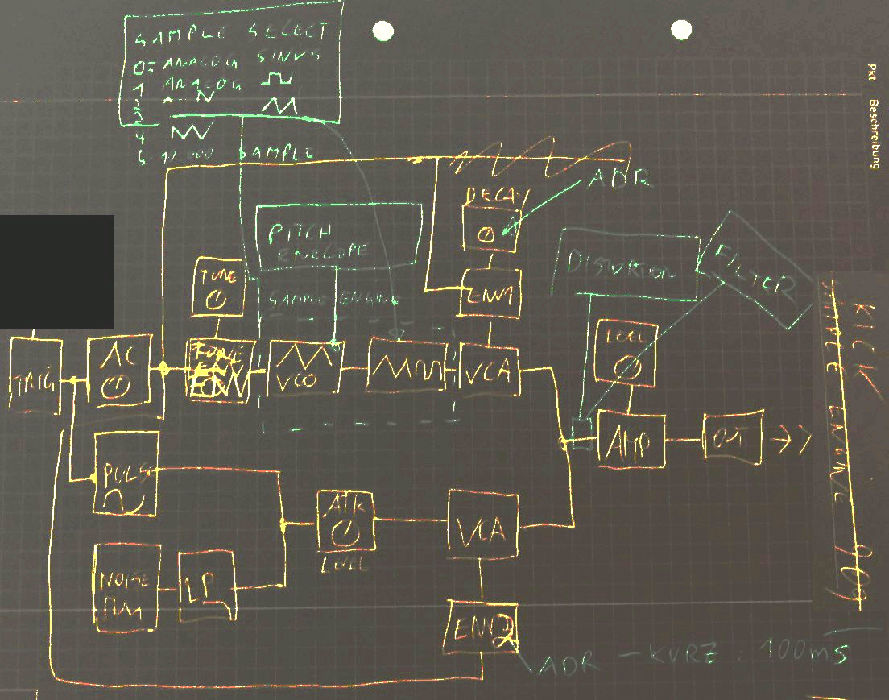 SAMPLE SELECT
0= ANALOG SINUS
1 ANALOG
2
3
4
SAMPLE
Pkt Beschreibung
ADR
DECAY
PITCH
ENVELOPE
TUNE
SAMPLE ENGINE
ENV1
DISTORTION
FILTER
LEVEL
TRIG
AC
VCO
VCA
AMP
OUT
KICK
SAMPLE ENGINE 909
PULSE
ATK
LEVEL
VCA
NOISE
LP
ENV2
ADR - KURZ: 100ms